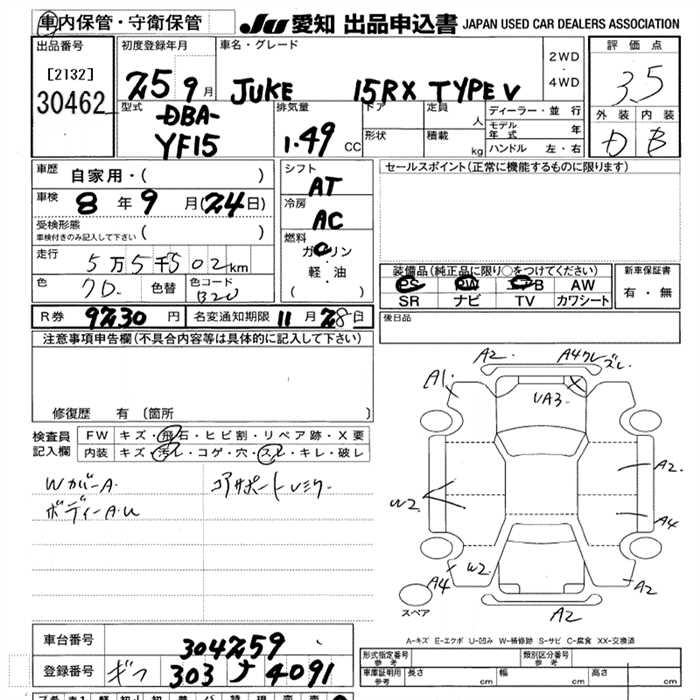 車内保管・守衛保管
JU 愛知 出品申込書 JAPAN USED CAR DEALERS ASSOCIATION
出品番号
[2132]
30462
初度登録年月
25 9月
車名・グレード
JUKE 15RX TYPE V
2WD
・
4WD
評価点
3.5
外装 内装
D B
型式
-DBA-
YF15
排気量
1.49 CC
ドア
形状
定員
人
積載
kg
ディーラー・並行
モデル年式 年
ハンドル 左・右
車歴
自家用・( )
車検
8年9月(24日)
受検形態
車検付きのみ記入して下さい
( )
走行
5万5千502km
色
色替
色コード
B20
シフト
AT
冷房
AC
燃料
ガソリン
・
軽油
( )
セールスポイント(正常に機能するものに限ります)
装備品(純正品に限り○をつけてください)
PS PW エアB AW
SR ナビ TV カワシート
新車保証書
有・無
後日品
R券 9230円
名変通知期限 11月28日
注意事項申告欄(不具合内容等は具体的に記入して下さい)
修復歴 有 〔箇所 〕
検査員記入欄
FW キズ・飛石・ヒビ割・リペア跡・X要
内装 キズ・汚レ・コゲ・穴・スレ・キレ・破レ
WカバーA
ボディーA.U
コアサポート
A2
A4
ズレ
A1
UA3
A2
W2
A4
W2
A4
A2
A2
スペア
A-キズ E-エクボ U-凹み W-補修跡 S-サビ C-腐食 XX-交換済
車台番号
304259
登録番号
ギフ 303 ナ 4091
形式指定番号
参考
類別区分番号
参考
車庫証明用
参考
長さ cm
幅 cm
高さ cm